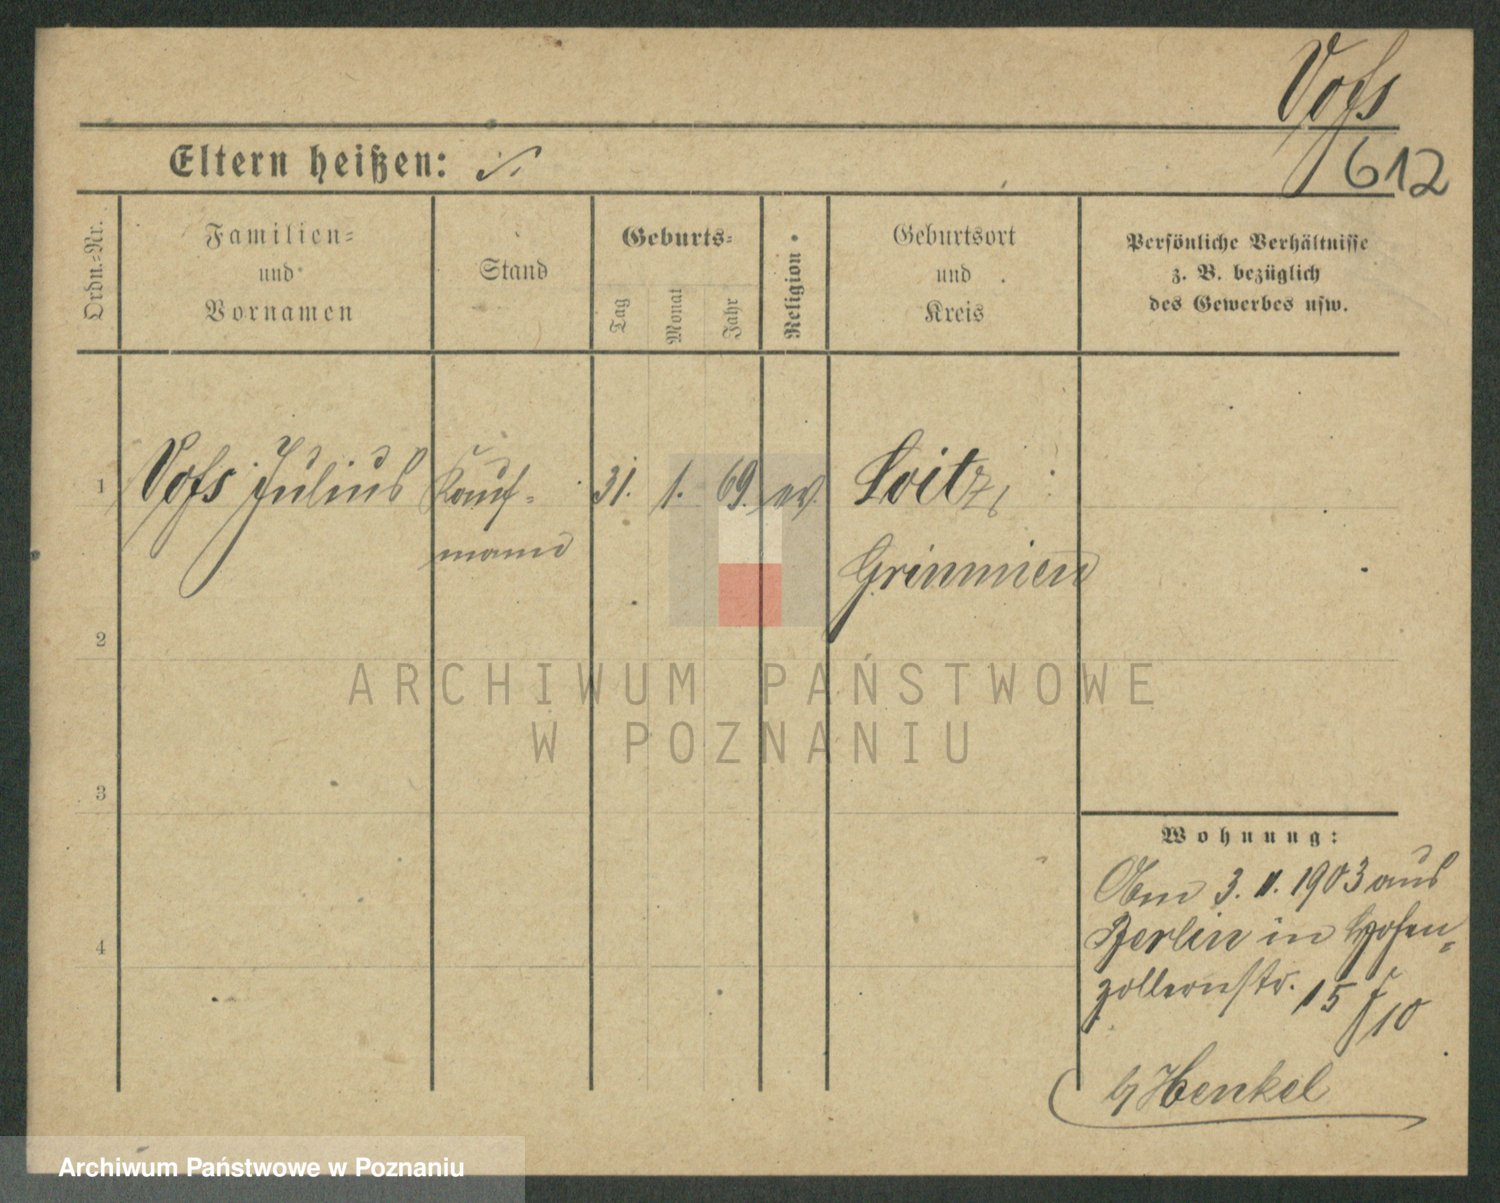 Voſs
612
Eltern heißen:
Ordn.-Nr.
Familien-
und
Vornamen
Stand
Geburts-
Tag
Monat
Jahr
Religion
Geburtsort
und
Kreis
Persönliche Verhältnisse
z. B. bezüglich
des Gewerbes usw.
1 Voſs Julius Kauf- 31. 1. 69. ev. Loitz,
mann
Grimmen
2
3
4
Wohnung:
Am 3. II. 1903 aus
Berlin in Hohen-
zollernstr. 15
10
b/ Henkel
ARCHIWUM PAŃSTWOWE
W POZNANIU
Archiwum Państwowe w Poznaniu